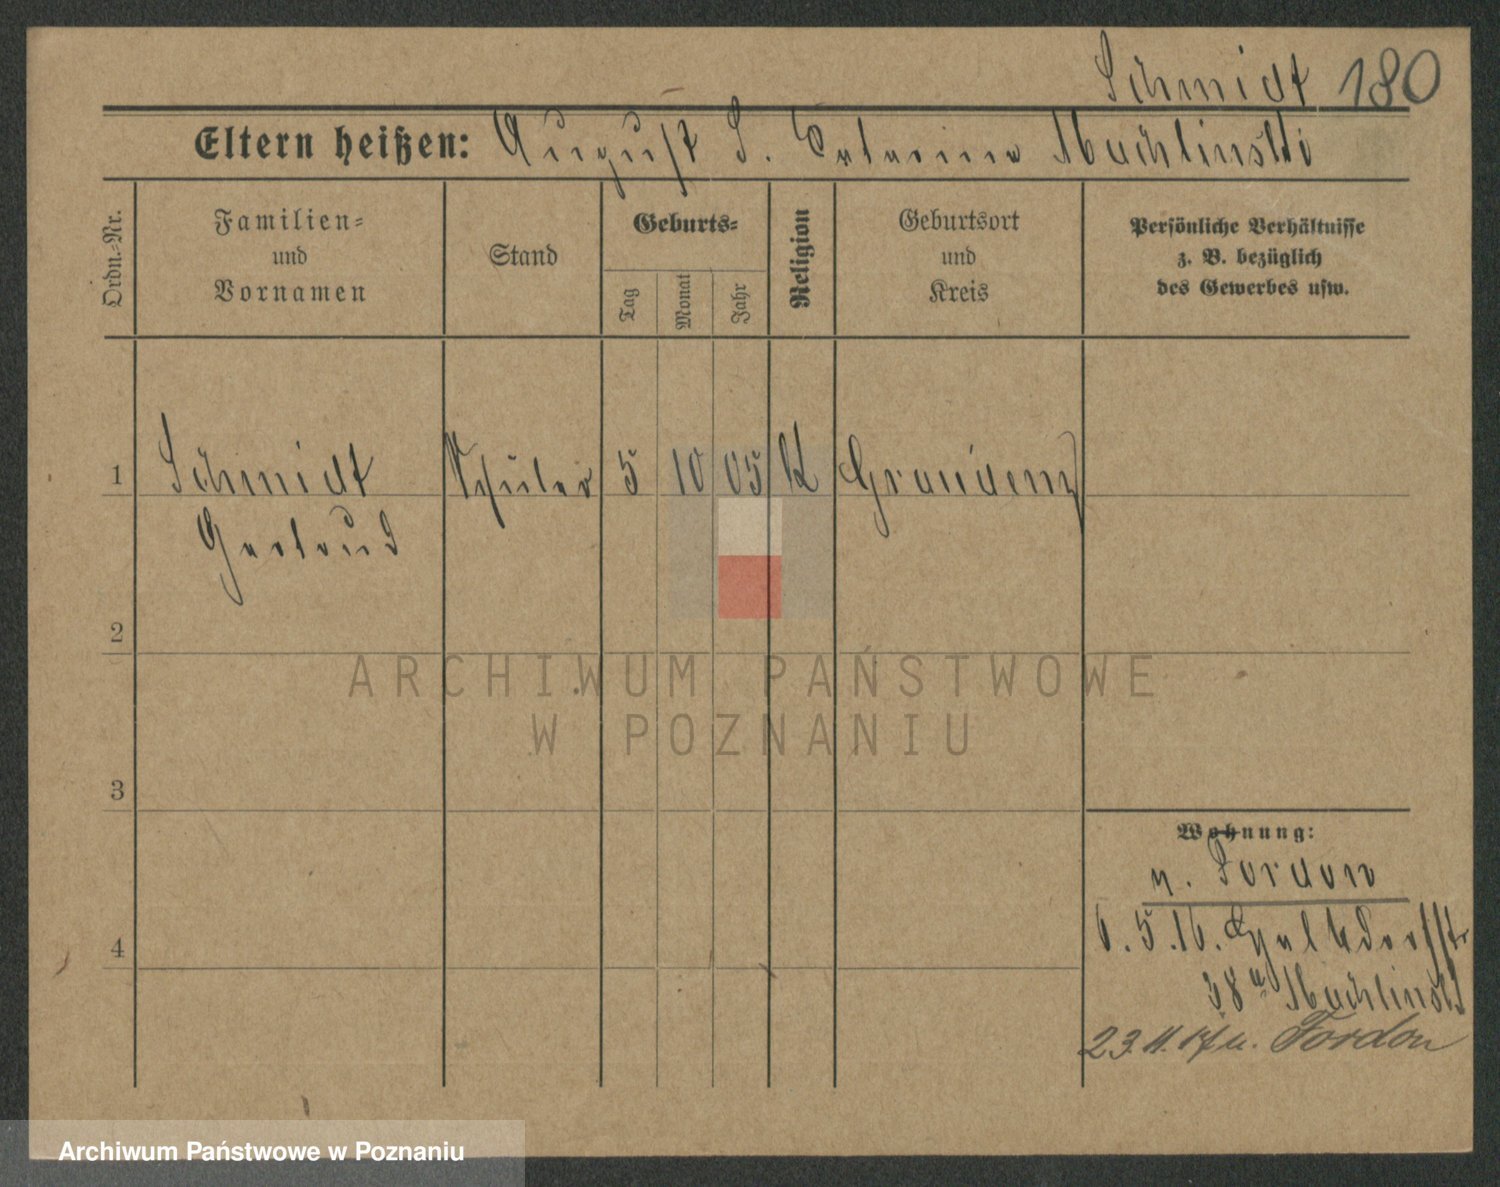 Schmidt 180
Eltern heißen: August S. Catarina Machlinski
Ordn.-Nr.
Familien-
und
Vornamen
Stand
Geburts-
Tag
Monat
Jahr
Religion
Geburtsort
und
Kreis
Persönliche Verhältnisse
z. B. bezüglich
des Gewerbes usw.
1 Schmidt Schüler 5 10 05 K Graudenz
Gertrud
2
3
4
Wohnung:
n. Fordon
6.5.16.
38a Machlinski
23.11.17 n. Fordon
ARCHIWUM PAŃSTWOWE
W POZNANIU
Archiwum Państwowe w Poznaniu